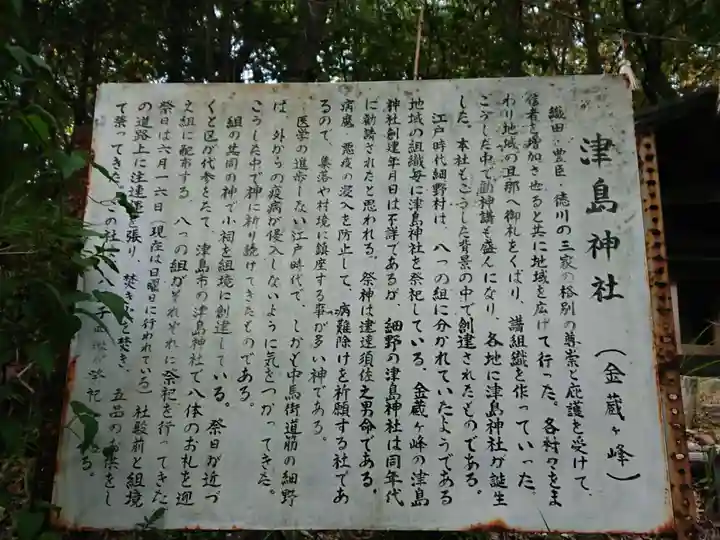 津島神社 (金蔵ヶ峰)
織田・豊臣・徳川の三家の格別の尊崇と庇護を受けて、
信者を増加させると共に地域を広げて行った。各村々をま
わり地域の旦那へ御札をくばり、講組織を作っていった、
こうした中で勧神講も盛んになり、各地に津島神社が誕生
した。本社もこうした背景の中で創建されたものである。
江戸時代細野村は、八つの組に分かれていたようである
地域の組織毎に津島神社を祭祀している、金蔵ヶ峰の津島
神社創建年月日は不詳であるが、細野の津島神社は同年代
に勧請されたと思われる、祭神は建速須佐之男命である。
病魔、悪疫の浸入を防止して、病難除けを祈願する社であ
るので、集落や村境に鎮座する事が多い神である。
医学の進歩しない江戸時代で、しかも中馬街道筋の細野
は、外からの疫病が侵入しないように気をつかってきた。
こうした中で神に祈り続けてきたものである。
組の共同の神で小祠を組境に創建している。祭日が近づ
くと区が代参をたて、津島市の津島神社で八体のお札を迎
え組に配布する、八つの組がそれぞれに祭祀を行ってきた
祭日は六月一六日(現在は日曜日に行われている)社殿前と組境
の道路上に注連縄を張り、焚き火を焚き、五品のお供をし
て祭ってきた。この社は八 子 祭祀 る。